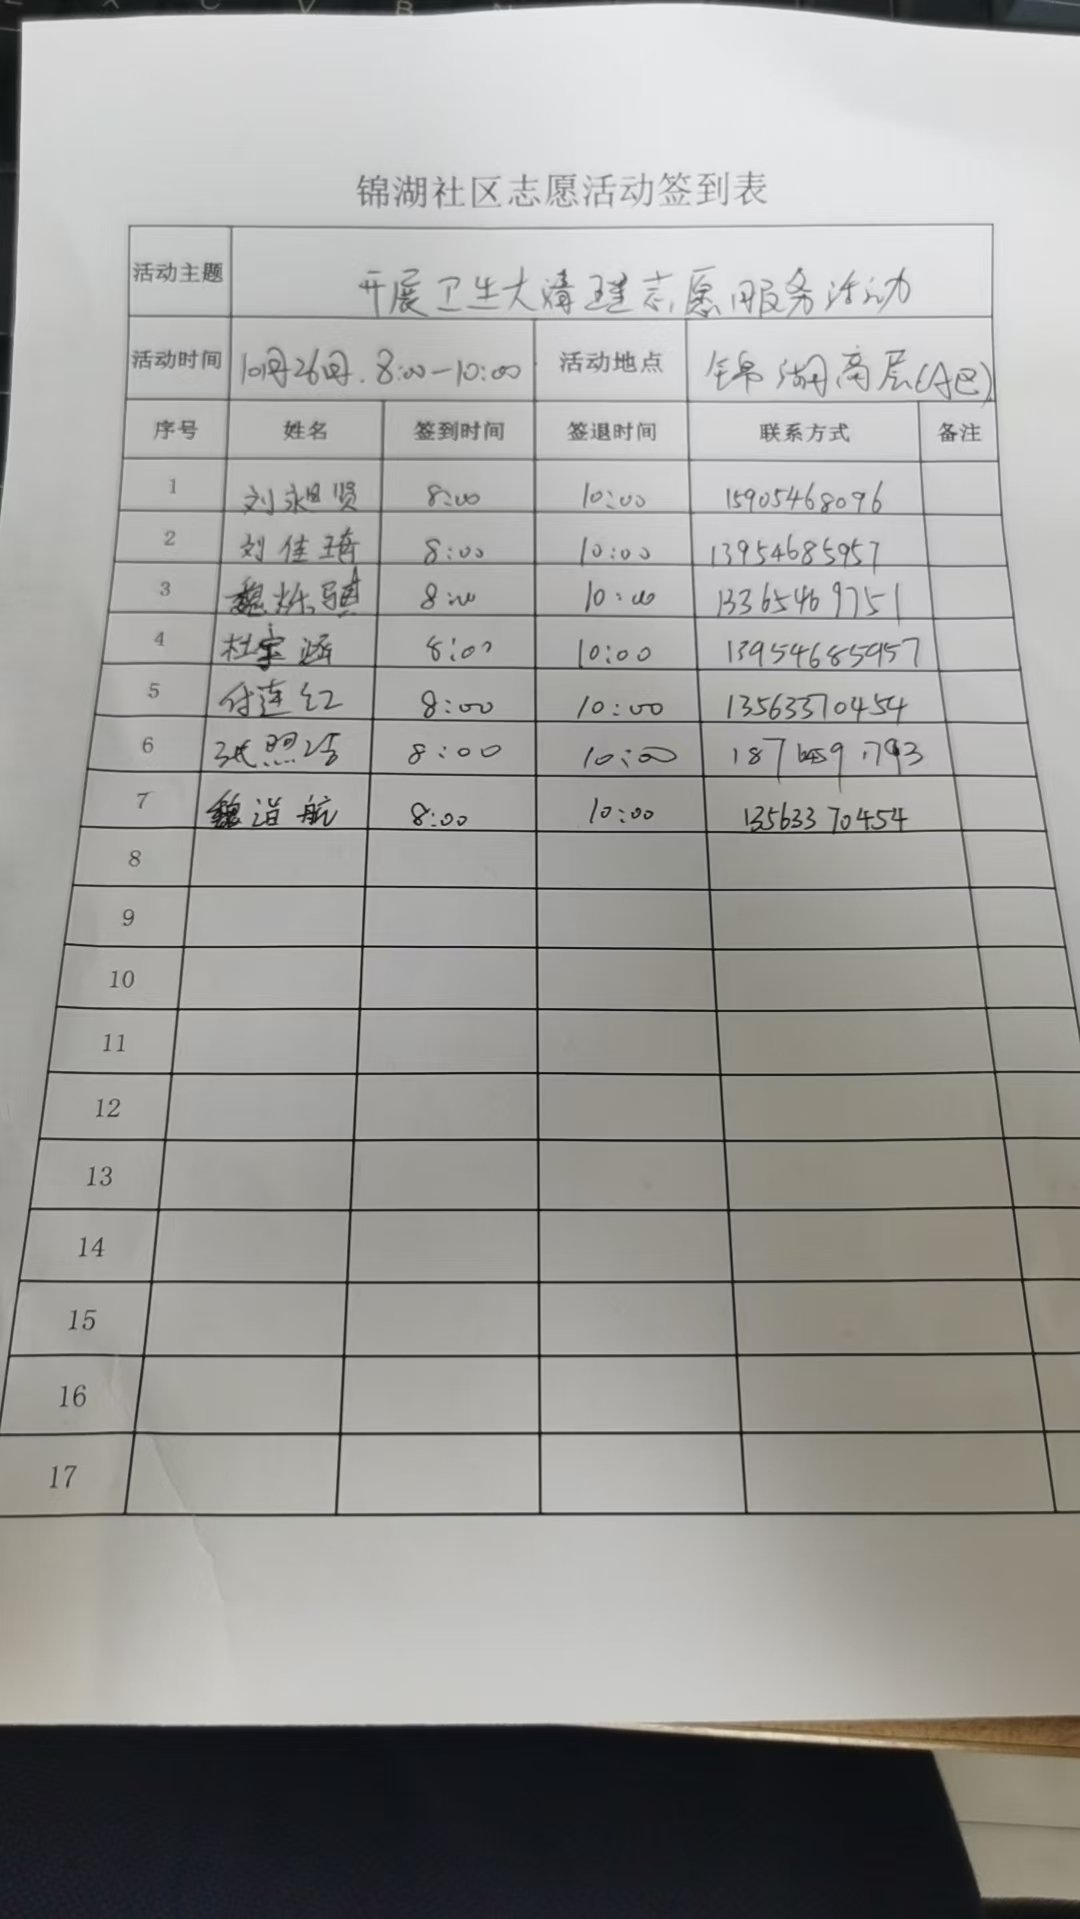 锦湖社区志愿活动签到表
活动主题 开展卫生大清理志愿服务活动
活动时间 10月26日. 8:00-10:00 活动地点 锦湖高层(A区)
序号 姓名 签到时间 签退时间 联系方式 备注
1 刘昶贤 8:00 10:00 15905468096
2 刘佳琦 8:00 10:00 13954685957
3 魏烁骐 8:00 10:00 13365469751
4 杜宝涵 8:00 10:00 13954685957
5 付连红 8:00 10:00 13563370454
6 张照 8:00 10:00
7 魏 航 8:00 10:00 13563370454
8
9
10
11
12
13
14
15
16
17